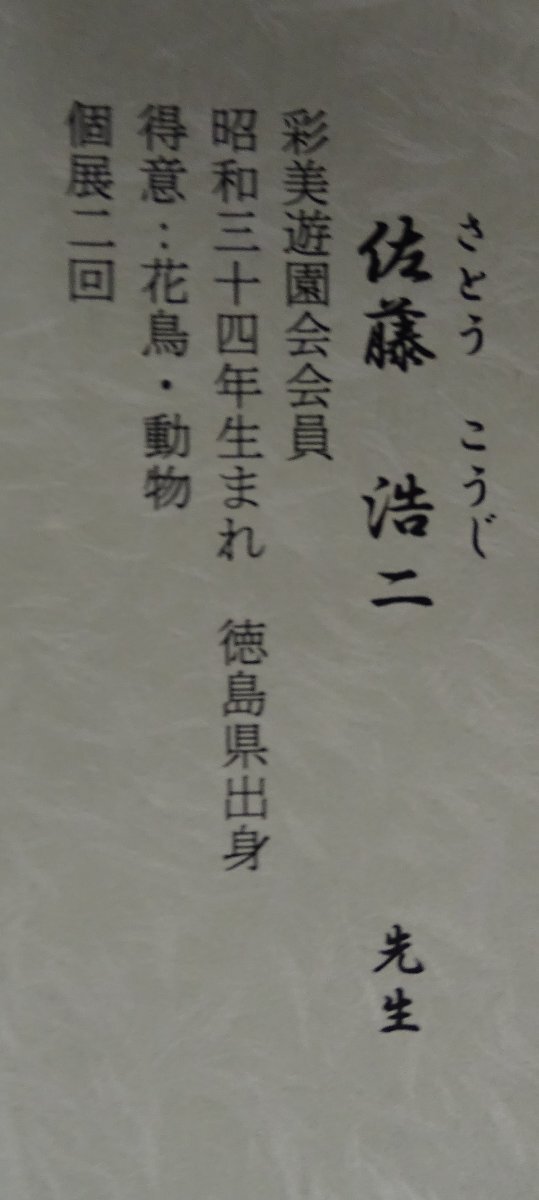 さとう こうじ
佐藤 浩二 先生
彩美遊園会会員
昭和三十四年生まれ 徳島県出身
得意：花鳥・動物
個展二回